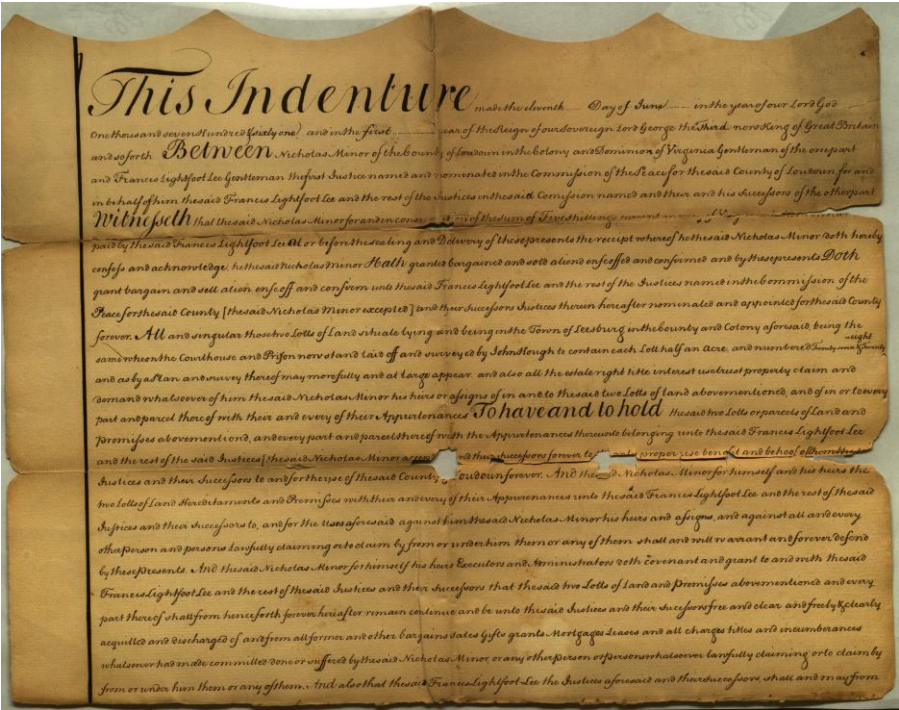 This Indenture made the eleventh Day of June in the year of our Lord God
One thousand seven Hundred & sixty one) and in the first year of the Reign of our Sovereign Lord George the Third now King of Great Britain
and so forth Between Nicholas Minor of the County of Loudoun in the Colony and Dominion of Virginia Gentleman of the one part
and Francis Lightfoot Lee Gentleman the first Justice named and nominated in the Commission of the Peace for the said County of Loudoun for and
in behalf of him the said Francis Lightfoot Lee and the rest of the Justices in the said Comission named and their and his Successors of the other part
Witnesseth that the said Nicholas Minor for and in of the sum of Five shillings
paid by the said Francis Lightfoot Lee at or before the sealing and Delivery of these presents the receipt whereof he the said Nicholas Minor doth hereby
confess and acknowledge, he the said Nicholas Minor Hath granted bargained and sold aliend enfeoffed and confirmed and by these presents Doth
grant bargain and sell alien enfeoff and confirm unto the said Francis Lightfoot Lee and the rest of the Justices named in the Commission of the
Peace for the said County [the said Nicholas Minor excepted] and their Successors Justices therein hereafter nominated and appointed for the said County
forever. All and singular those two Lotts of Land situate lying and being in the Town of Leesburg in the County and Colony aforesaid, being the
same wheron the Courthouse and Prison now stand laid off and surveyed by John Hough to contain each Lott half an Acre, and numbered Twenty seven & Twenty eight
and as by a Plan and survey thereof may more fully and at large appear. and also all the estate right title interest use trust property claim and
demand whatsoever of him the said Nicholas Minor his heirs or assigns of in and to the said two Lotts of land abovementioned, and of in or to every
part and parcel thereof with their and every of their Appurtenances To have and to hold the said two Lotts or parcels of Land and
Premisses abovementioned, and every part and parcel thereof with the Appurtenances thereunto belonging unto the said Francis Lightfoot Lee
and the rest of the said Justices [the said Nicholas Minor and their successors forever to proper use benefit and behoof of them the
Justices and their Successors to and for the use of the said County Loudoun forever. And the said Nicholas Minor for himself and his heirs the
two Lotts of Land Hereditaments and Premisses with their and every of their Appurtenances unto the said Francis Lightfoot Lee and the rest of the said
Justices and their Successors to, and for the Use aforesaid against him the said Nicholas Minor his heirs and assigns, and against all and every
other person and persons Lawfully claiming or to claim by from or under him them or any of them shall and will warrant and forever defend
by these Presents. And the said Nicholas Minor for himself his heirs Executors and Administrators doth Covenant and grant to and with the said
Francis Lightfoot Lee and the rest of the said Justices and their Successors that the said two Lotts of Land and Premisses abovementioned and every
part thereof shall from henceforth forever hereafter remain continue and be unto the said Justices and their Successors free and clear and freely & clearly
acquitted and discharged of and from all former and other bargains Sales Gifts grants Mortgages Leases and all charges titles and incumberances
whatsoever had made committed done or suffered by the said Nicholas Minor or any other person or persons whatsoever lawfully claiming or to claim by
from or under him them or any of them. And also that the said Francis Lightfoot Lee the Justices aforesaid and their Successors, shall and may from